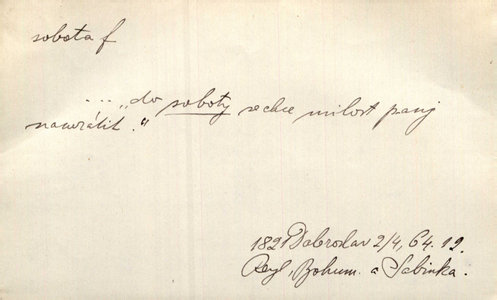 sobota f
... „do soboty se chce milost panj
nawrátit.“
1821 Dobroslav 2/4, 64. 12.
Regl, Bohum. a Sabinka.